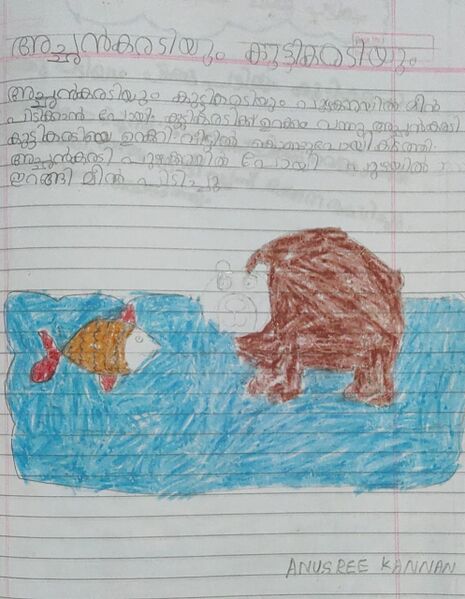 അച്ഛൻകരടിയും കുട്ടികരടിയും
അച്ഛൻകരടിയും കുട്ടികരടിയും പുഴക്കരയിൽ മീൻ
പിടിക്കാൻ പോയി. കുട്ടികരടിക്ക് ഉറക്കം വന്നു അച്ഛൻകരടി
കുട്ടികരടിയെ ഉറക്കി വീട്ടിൽ കൊണ്ടുപോയി കിടത്തി.
അച്ഛൻകരടി പുഴക്കരയിൽ പോയി പുഴയിൽ
ഇറങ്ങി മീൻ പിടിച്ചു
ANUSREE KANNAN